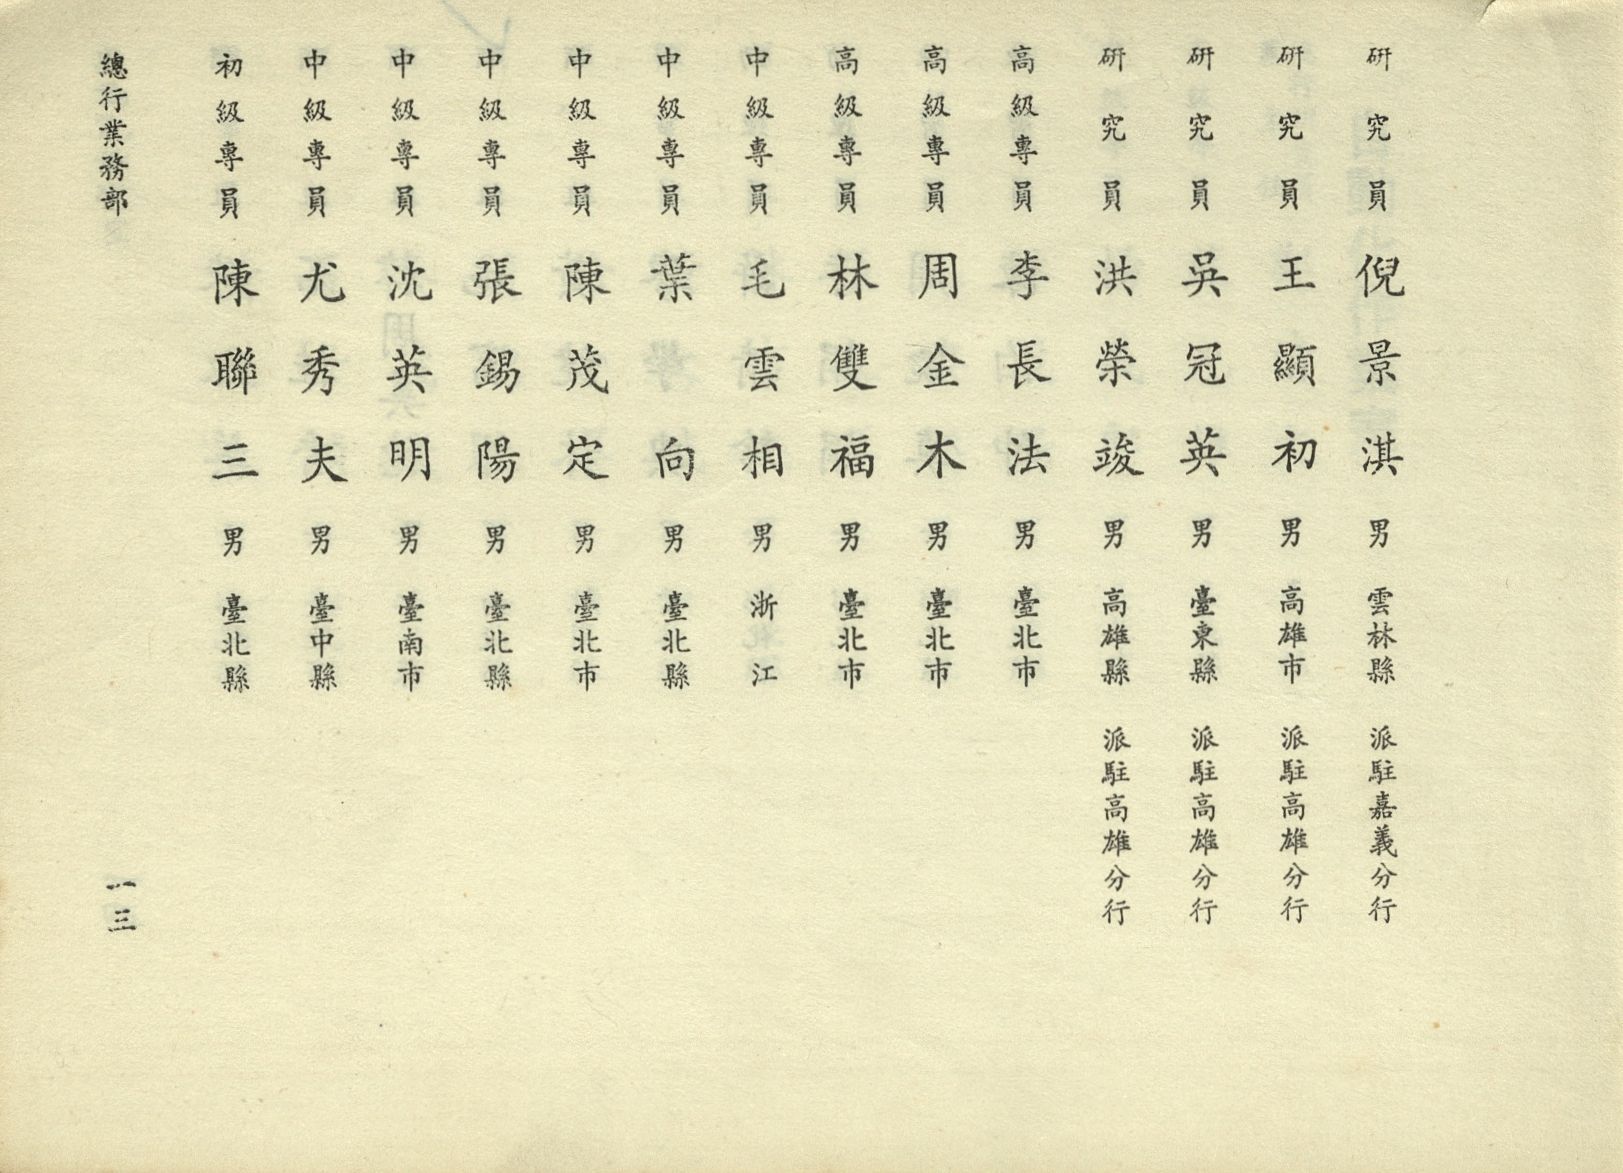 研究員 倪景淇 男 雲林縣 派駐嘉義分行
研究員 王顯初 男 高雄市 派駐高雄分行
研究員 吳冠英 男 臺東縣 派駐高雄分行
研究員 洪榮竣 男 高雄縣 派駐高雄分行
高級專員 李長法 男 臺北市
高級專員 周金木 男 臺北市
高級專員 林雙福 男 臺北市
中級專員 毛雲相 男 浙江
中級專員 葉向 男 臺北縣
中級專員 陳茂定 男 臺北市
中級專員 張錫陽 男 臺北縣
中級專員 沈英明 男 臺南市
中級專員 尤秀夫 男 臺中縣
初級專員 陳聯三 男 臺北縣
總行業務部
一三